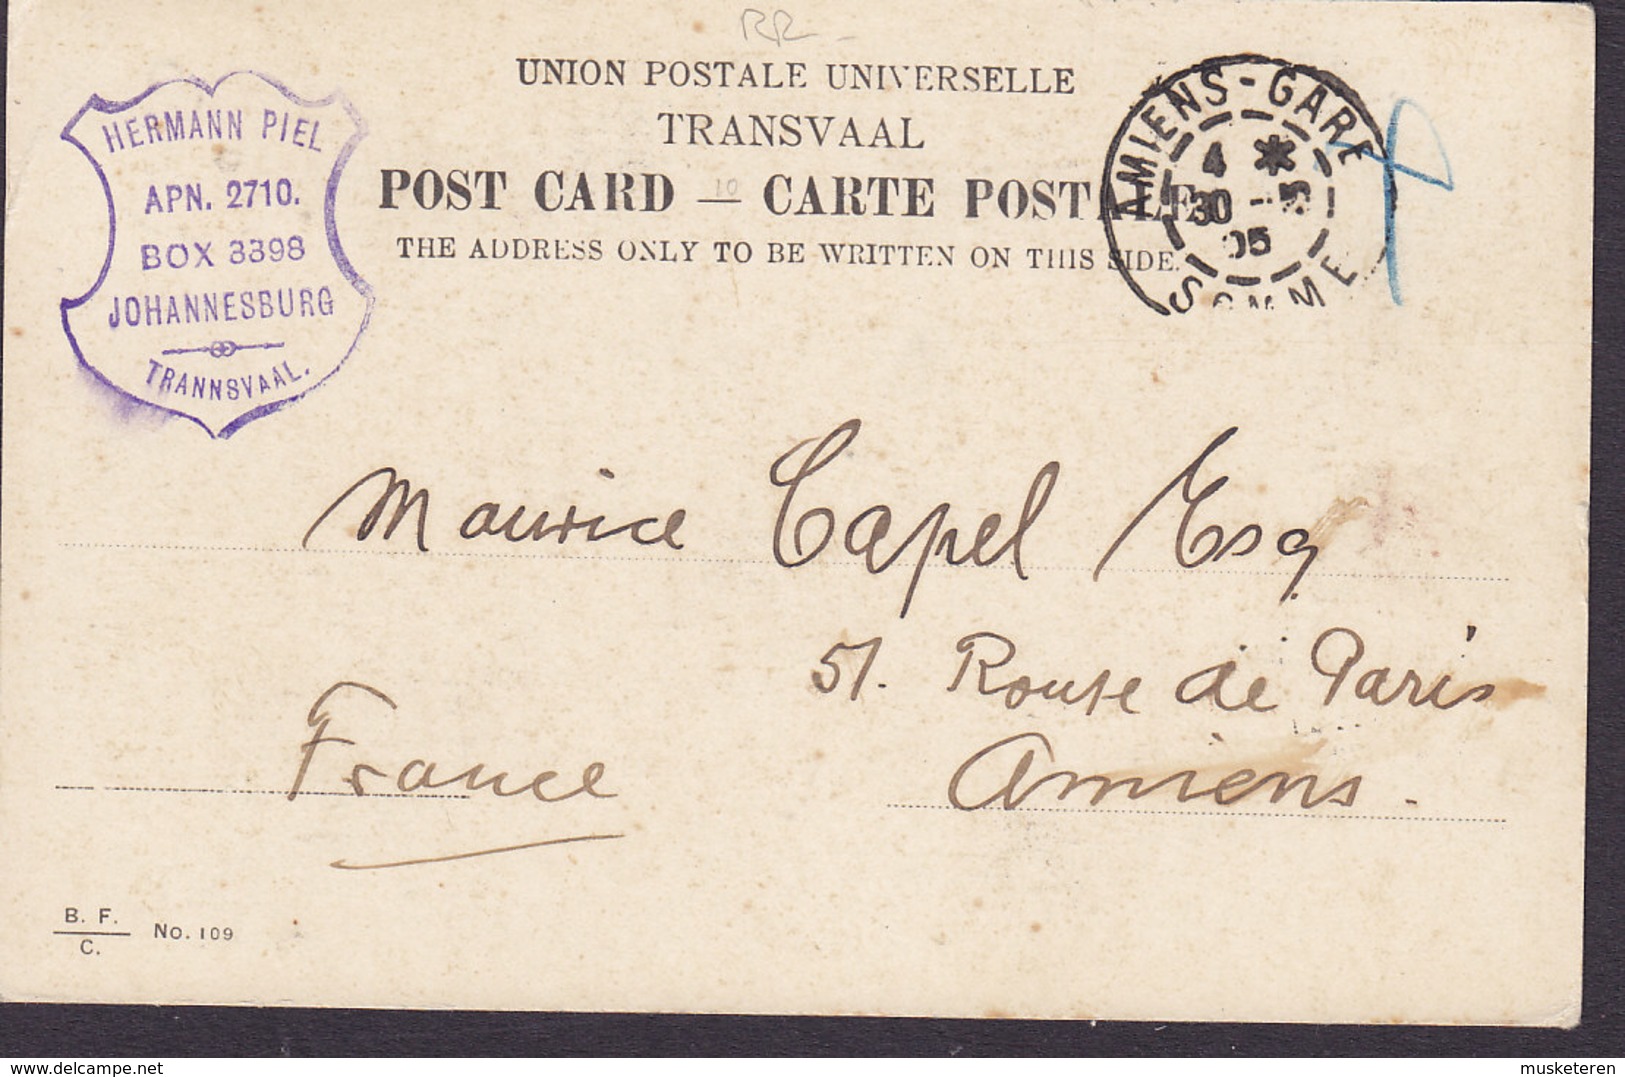 RR
UNION POSTALE UNIVERSELLE
TRANSVAAL
POST CARD — CARTE POSTALE
THE ADDRESS ONLY TO BE WRITTEN ON THIS SIDE.
HERMANN PIEL
APN. 2710.
BOX 3398
JOHANNESBURG
TRANNSVAAL.
AMIENS-GARE
4 *
30 -5
05
SOMME
Maurice Capel Esq
51. Route de Paris
Amiens.
France
B. F.
C.
No. 109
delcampe.net
musketeren